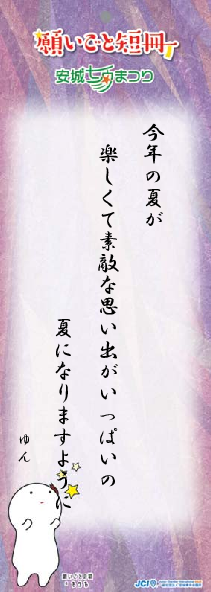 願いごと短冊
安城七夕まつり
今年の夏が
楽しくて素敵な思い出がいっぱいの
夏になりますように
ゆん
JCI